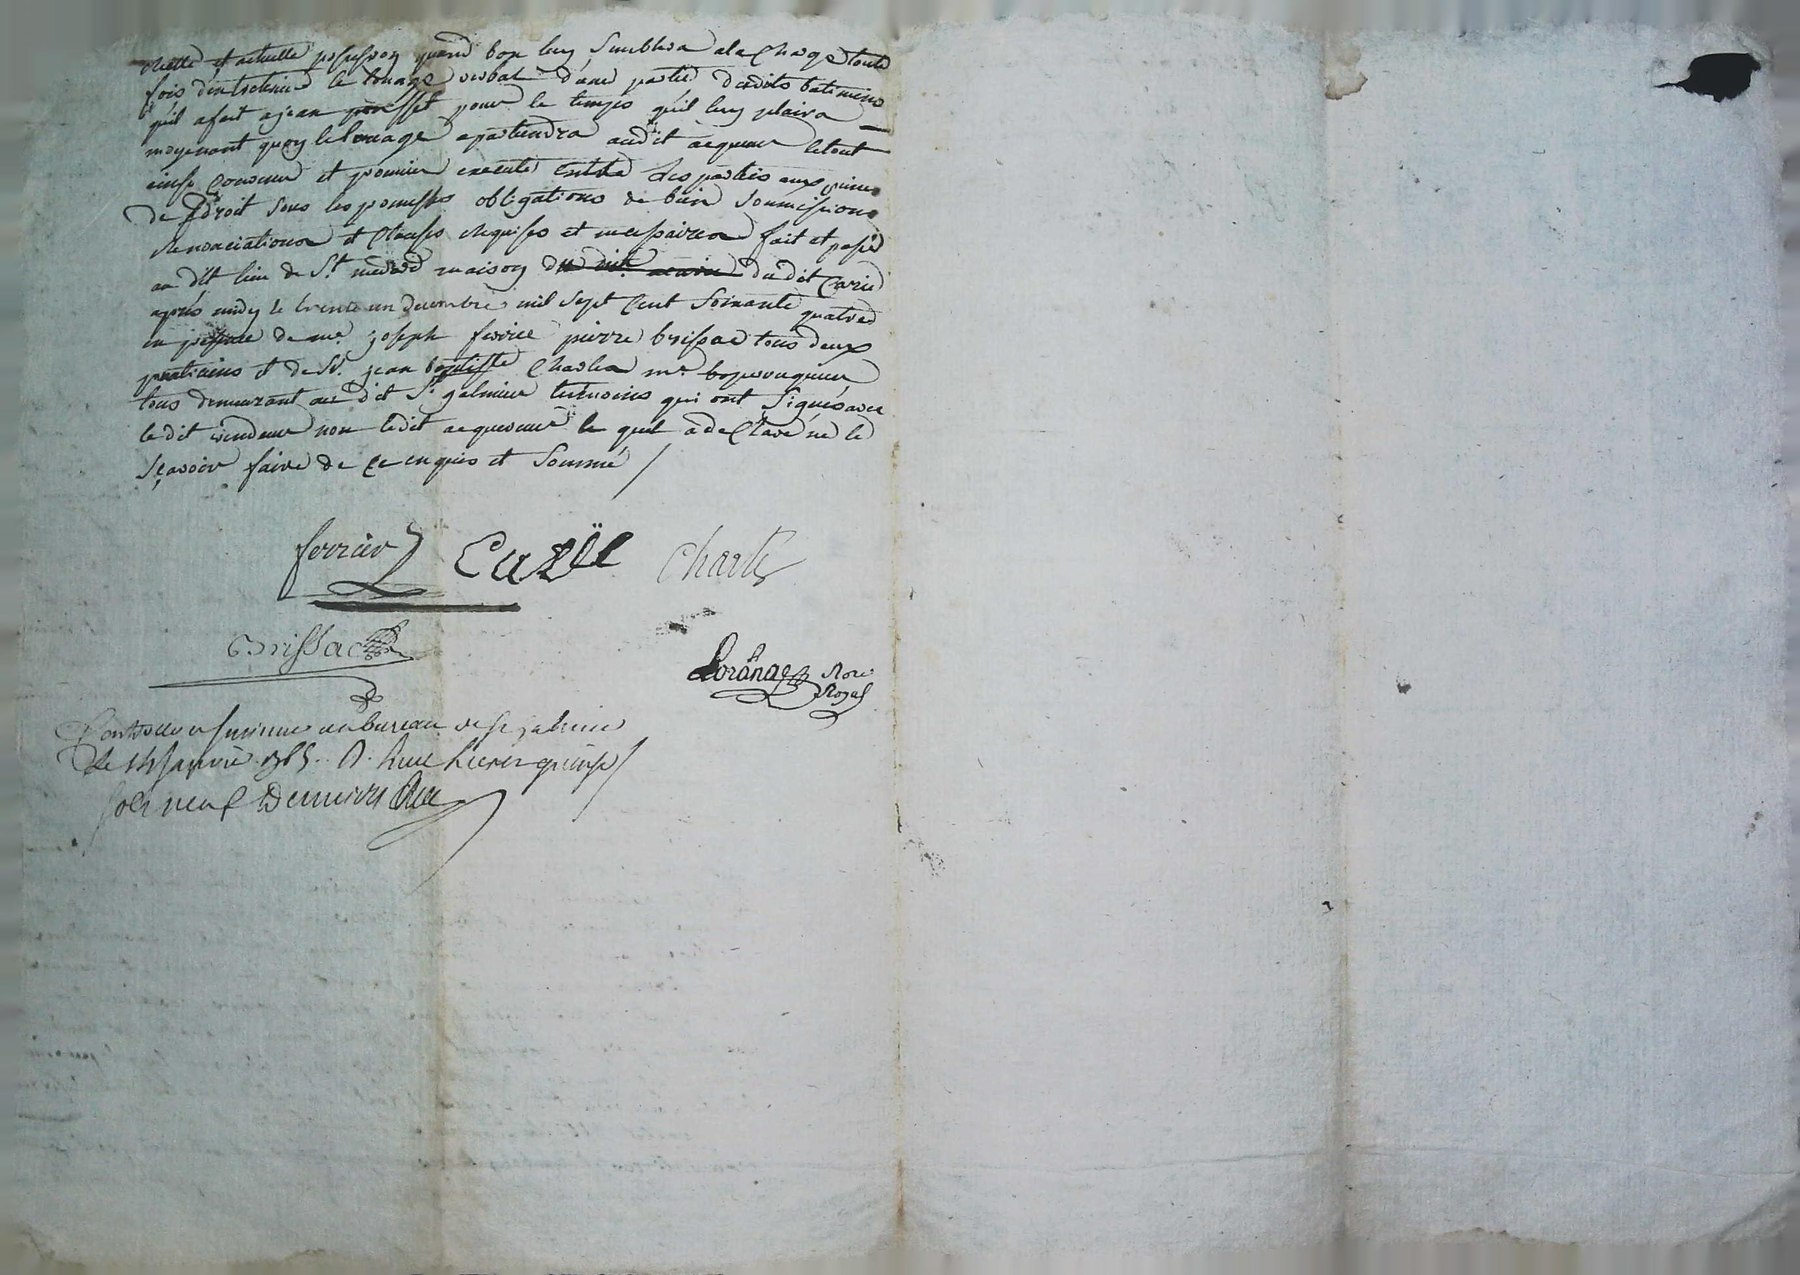 réelle et actuelle possession quand bon luy semblera a la charge toute
fois dentretenir le louage verbal d'une partie desdits batimens
qu'il a fait a jean pour le temps qu'il luy plaira
moyenant quoy le louage apartiendra audit aquereur letout
ainsy convenu et promis executé entre les parties aux peines
de droit sous les promesses obligations de bien soumissions
Renonciations et clauses requises et necessaires fait et passé
au dit lieu de St medard maison du dit
après midy le trente un decembre mil sept cent soixante quatre
en presence de mr joseph ferrier pierre brissac tous deux
praticiens et de Sr. jean baptiste Charles mr
tous demeurant au dit St galmier temoins qui ont signés avec
le dit vendeur non ledit aquereur le quel a declaré ne le
sçavoir faire de ce enquis et sommé /
ferrier Charles
Brissac
Lorange Nore
Royal
Controllé au bureau de St galmier
Le janvier 1765. R.
sols neuf deniers